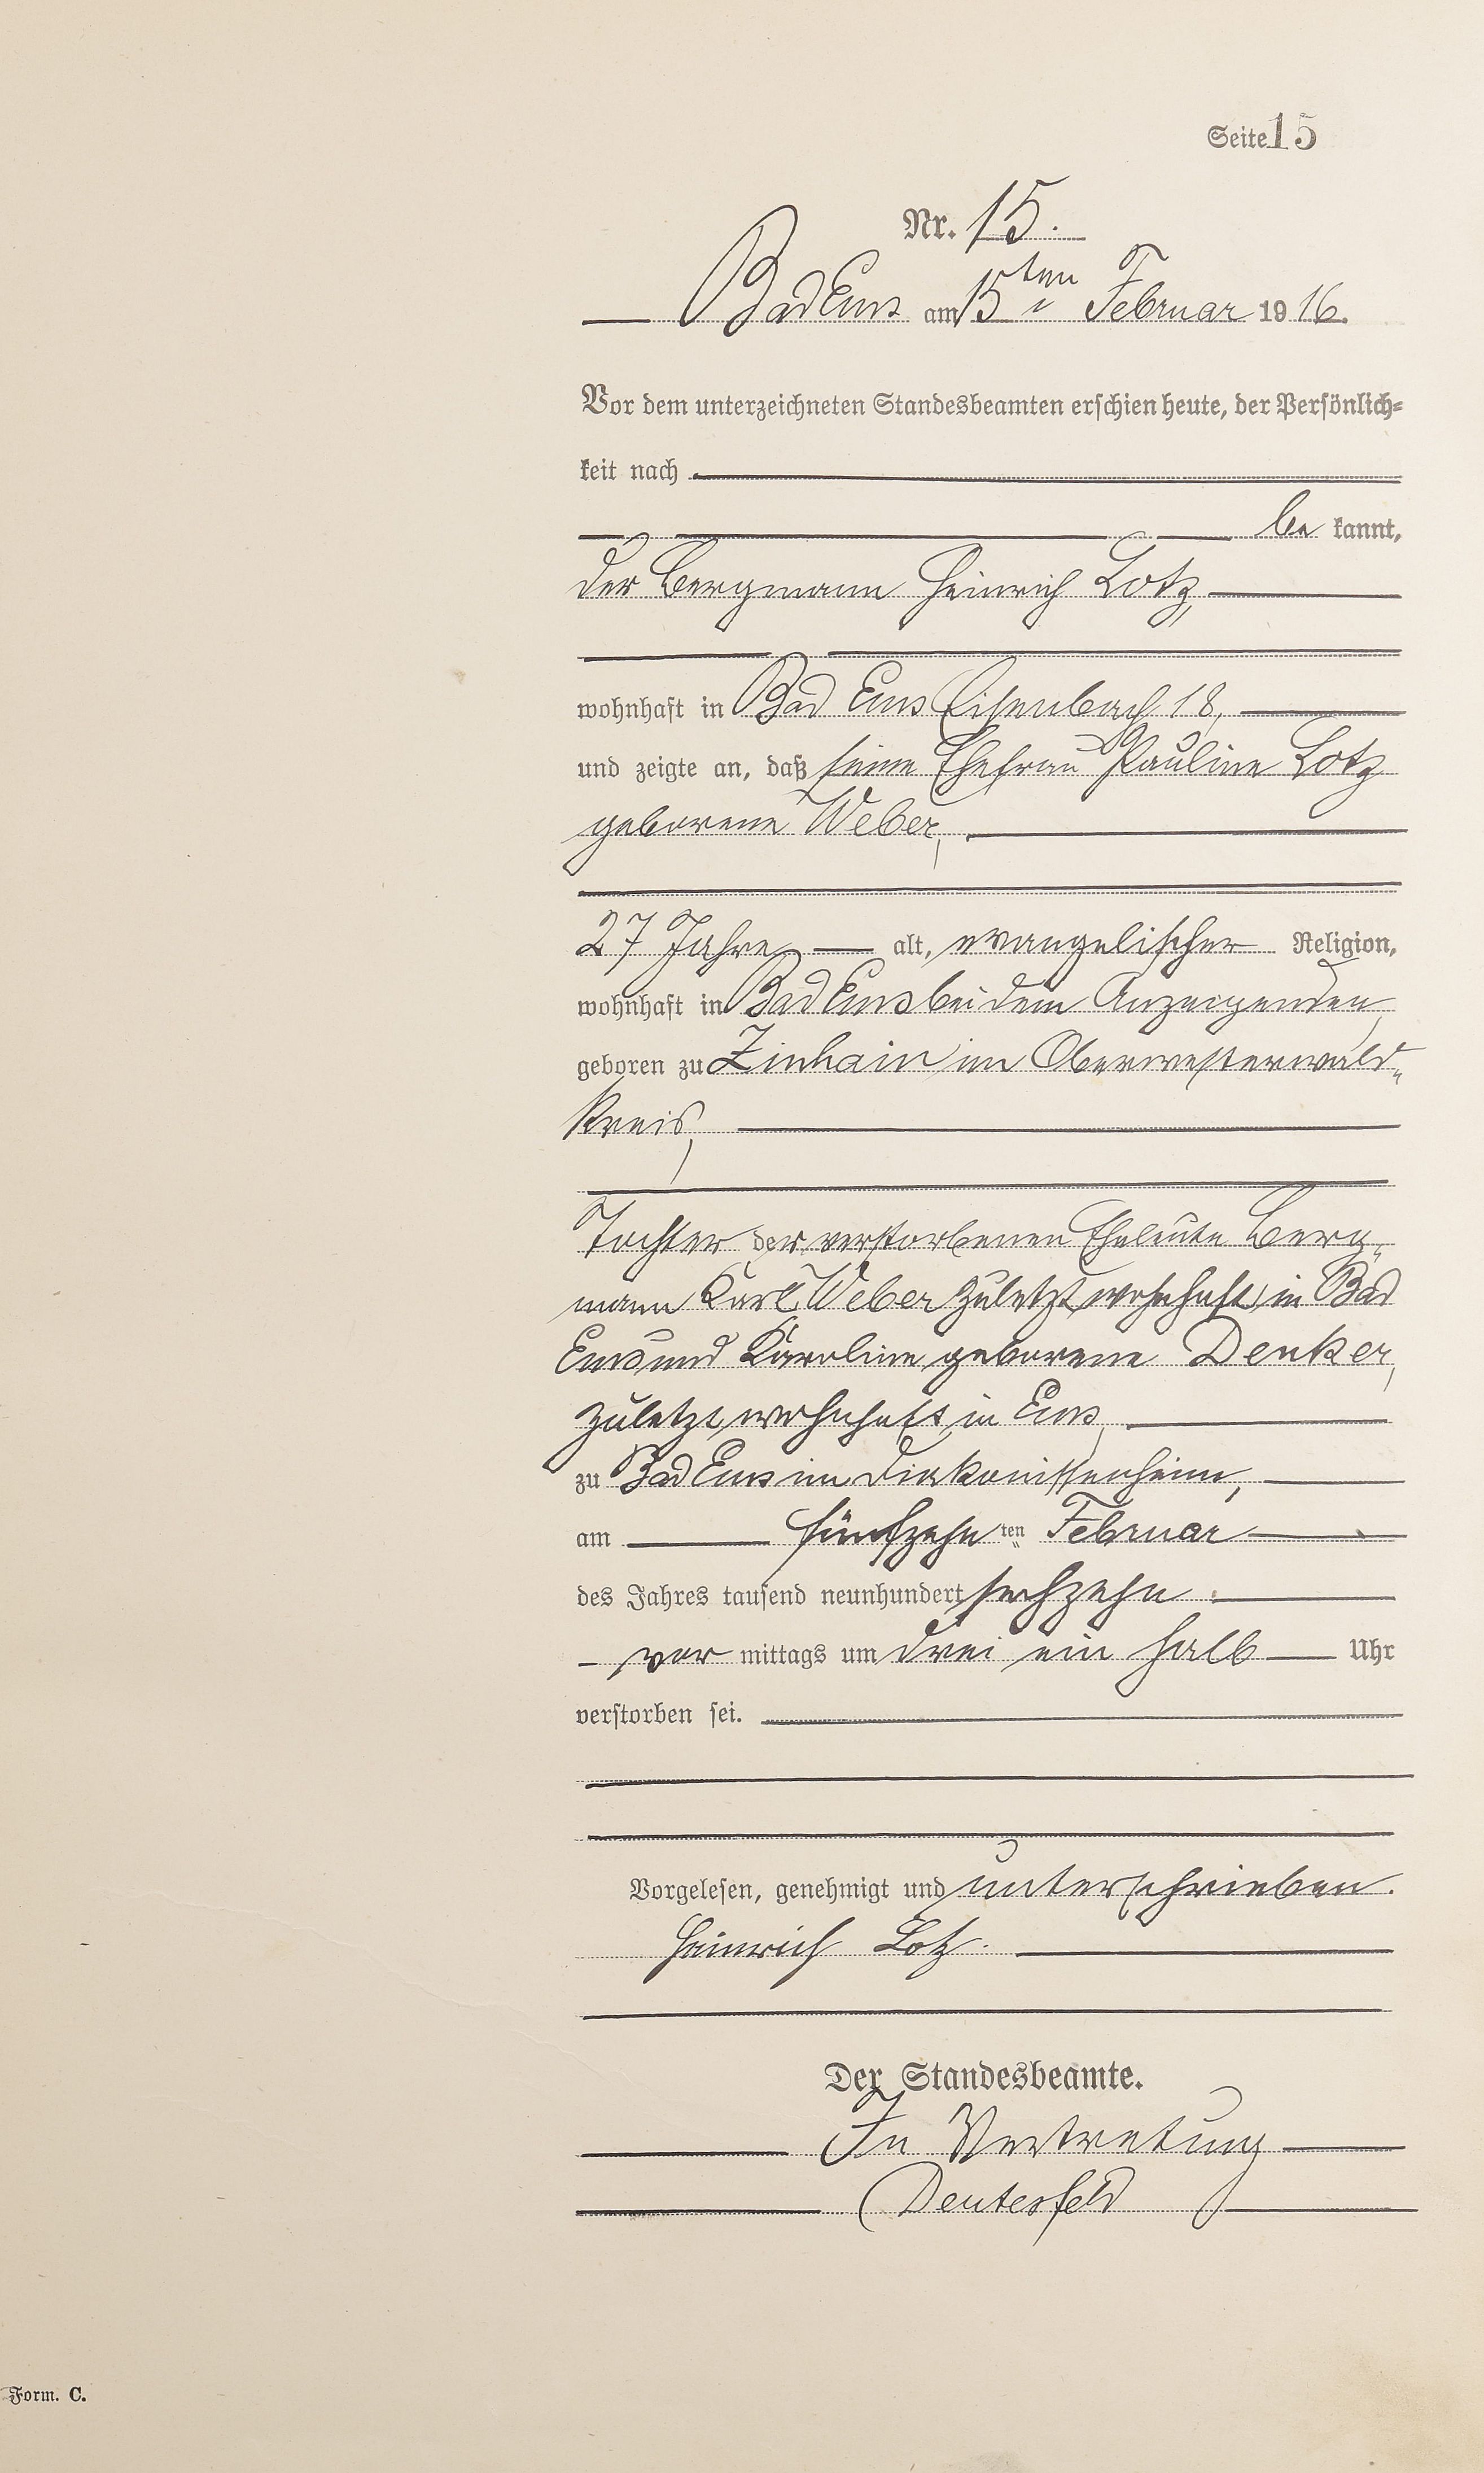 Seite 15
Nr. 15.
Bad Ems am 15ten Februar 1916.
Vor dem unterzeichneten Standesbeamten erschien heute, der Persönlich-
keit nach
be kannt,
der Bergmann Heinrich Lotz,
wohnhaft in Bad Ems Eisenbach 18,
und zeigte an, daß seine Ehefrau Pauline Lotz
geborene Weber,
27 Jahre alt, evangelischer Religion,
wohnhaft in Bad Ems bei dem Anzeigenden,
geboren zu Zinhain im Oberwesterwald-
Kreis,
Tochter der verstorbenen Eheleute Berg-
mann Karl Weber zuletzt wohnhaft in Bad
Ems und Karoline geborene Denker,
zuletzt wohnhaft in Ems,
zu Bad Ems im Diakonissenheim,
am fünfzehn ten Februar
des Jahres tausend neunhundert sechzehn
vor mittags um drei ein halb Uhr
verstorben sei.
Vorgelesen, genehmigt und unterschrieben.
Heinrich Lotz.
Der Standesbeamte.
In Vertretung
Deutesfeld
Form. C.